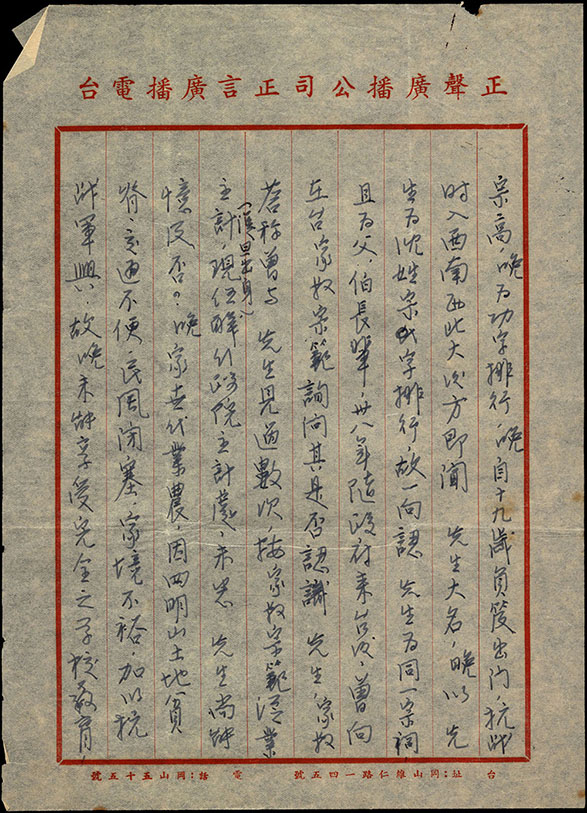 正聲廣播公司正言廣播電台
宗高，晚为功字排行，晚自十九歲負笈出门，抗战
时入西南西北大次方即闻　先生大名，晚以先
生为沈姓宗字排行，故一向認　先生为同一宗祠
且为父、伯長輩，卅八年随政府来台後，曾向
在台家叔宗範詢问其是否認識　先生，家叔
答称曾与　先生見过數次，按家叔宗範從業
（復旦出身）
主計，现任職行政院主計處，未悉　先生尚能
憶及否？晚家世代業農，因四明山土地貧
脊，交通不便，民風闭塞，家境不裕，加以抗
战軍興，故晚未能享受完全之学校教育，
台址：岡山維仁路一四五號　電話：岡山五十五號